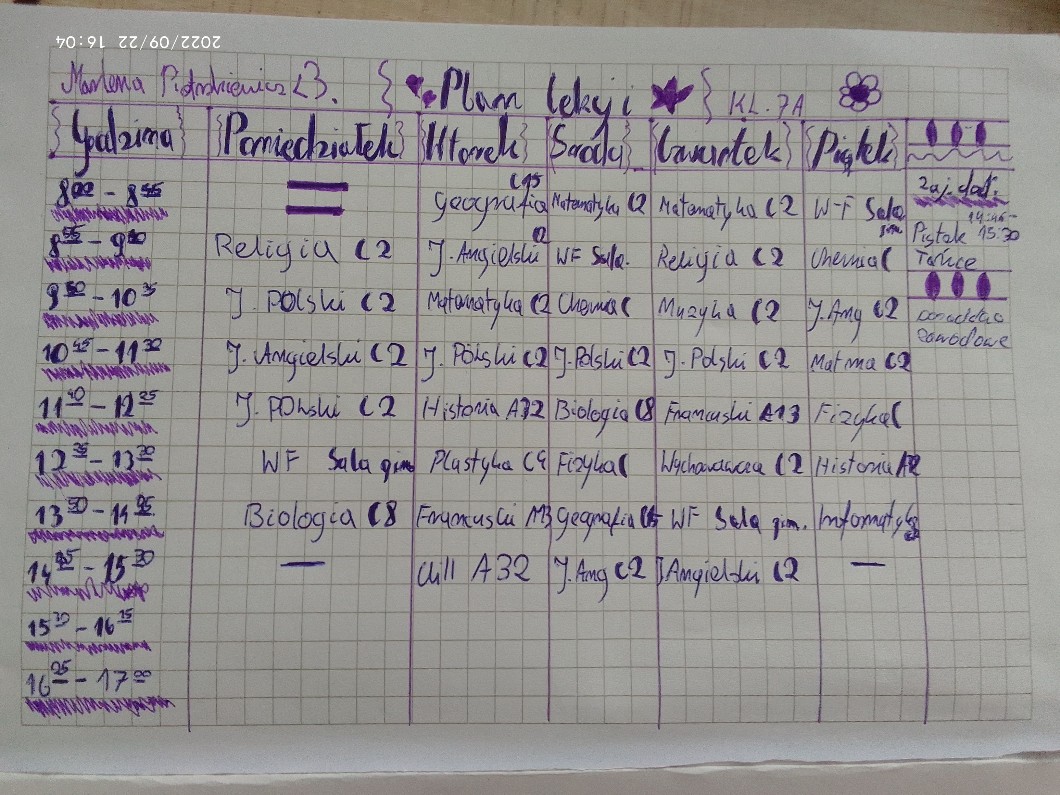 2022/09/22 16:04
Marlena <3. { Plan lekyi } KL. 7A
{Godzina} {Poniedziałek} {Wtorek} {Środa} {Czwartek} {Piątek}
8 00 - 8 45 = Geografia C15 Matematyka C2 Matematyka C2 W-F Sala gim
zaj. dod.
8 55 - 9 40 Religia C2 J. Angielski C2 WF Sala. Religia C2 Chemia C
Piątek 14:45- 15:30
Tańce
9 50 - 10 35 J. Polski C2 Matematyka C2 Chemia C Muzyka C2 J. Ang C2
doradztwo
zawodowe
10 45 - 11 30 J. Angielski C2 J. Polski C2 J. Polski C2 J. Polski C2 Matma C2
11 40 - 12 25 J. Polski C2 Historia A32 Biologia C8 Francuski A13 Fizyka C
12 35 - 13 20 WF Sala gim Plastyka C4 Fizyka C Wychowawcza C2 Historia A32
13 50 - 14 35 Biologia C8 Francuski A13 Geografia C15 WF Sala gim. Informatyka
14 45 - 15 30 — Chill A32 J. Ang C2 J Angielski C2 —
15 30 - 16 15
16 25 - 17 00